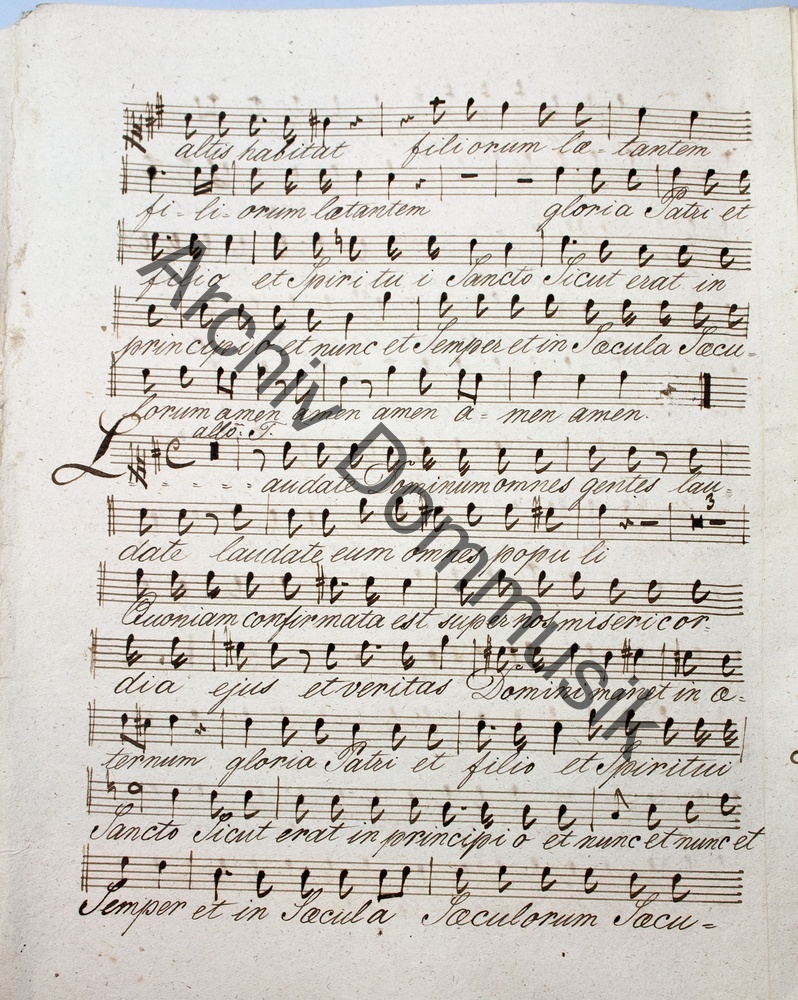 altis habitat filiorum læ- tantem
fi- li- orum lætantem gloria Patri et
filio et Spiritu i Sancto Sicut erat in
principio et nunc et Semper et in Sæcula Sæcu-
lorum amen amen amen a- men amen.
L
audate Dominum omnes gentes lau-
3
date laudate eum omnes popu li
Quoniam confirmata est super nos misericor-
dia ejus et veritas Domini manet in æ-
ternum gloria Patri et filio et Spiritui
Sancto Sicut erat in principi o et nunc et nunc et
Semper et in Sæcula Sæculorum Sæcu=
Archiv Dommusik